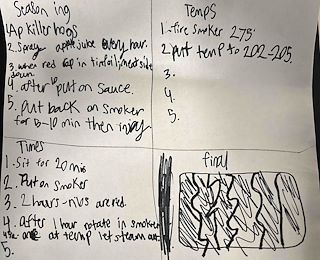 Seasoning
1. Ap killer hogs
2. Spray apple juice every hour.
3. when red rap in tinfoil meat side
down.
4. after put on sauce.
5. put back on smoker
for 5-10 min then injoy
Temps
1. fire smoker 275°
2. put temp to 202-205.
3.
4.
5.
Times
1. Sit for 20 min
2. Put on smoker
3. 2 hours - ribs are red.
4. after 1 hour rotate in smoker
at temp let steam out
5.
final